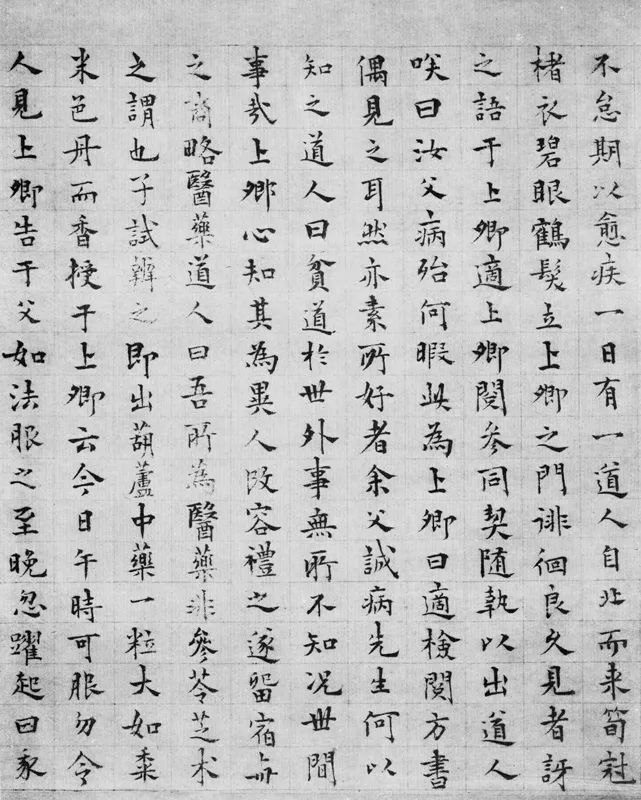 不怠期以愈疾一日有一道人自北而来筍冠
楮衣碧眼鶴髮立上卿之門徘徊良久見者訝
之語于上卿適上卿閱參同契随執以出道人
咲曰汝父病殆何暇此為上卿曰適檢閱方書
偶見之耳然亦素所好者余父誠病先生何以
知之道人曰貧道於世外事無所不知况世間
事哉上卿心知其為異人改容禮之遂留宿與
之商略醫藥道人曰吾所為醫藥非參苓芝术
之謂也子試辯之即出葫蘆中藥一粒大如黍
米色丹而香授于上卿云今日午時可服勿令
人見上卿告于父如法服之至晚忽躍起曰家